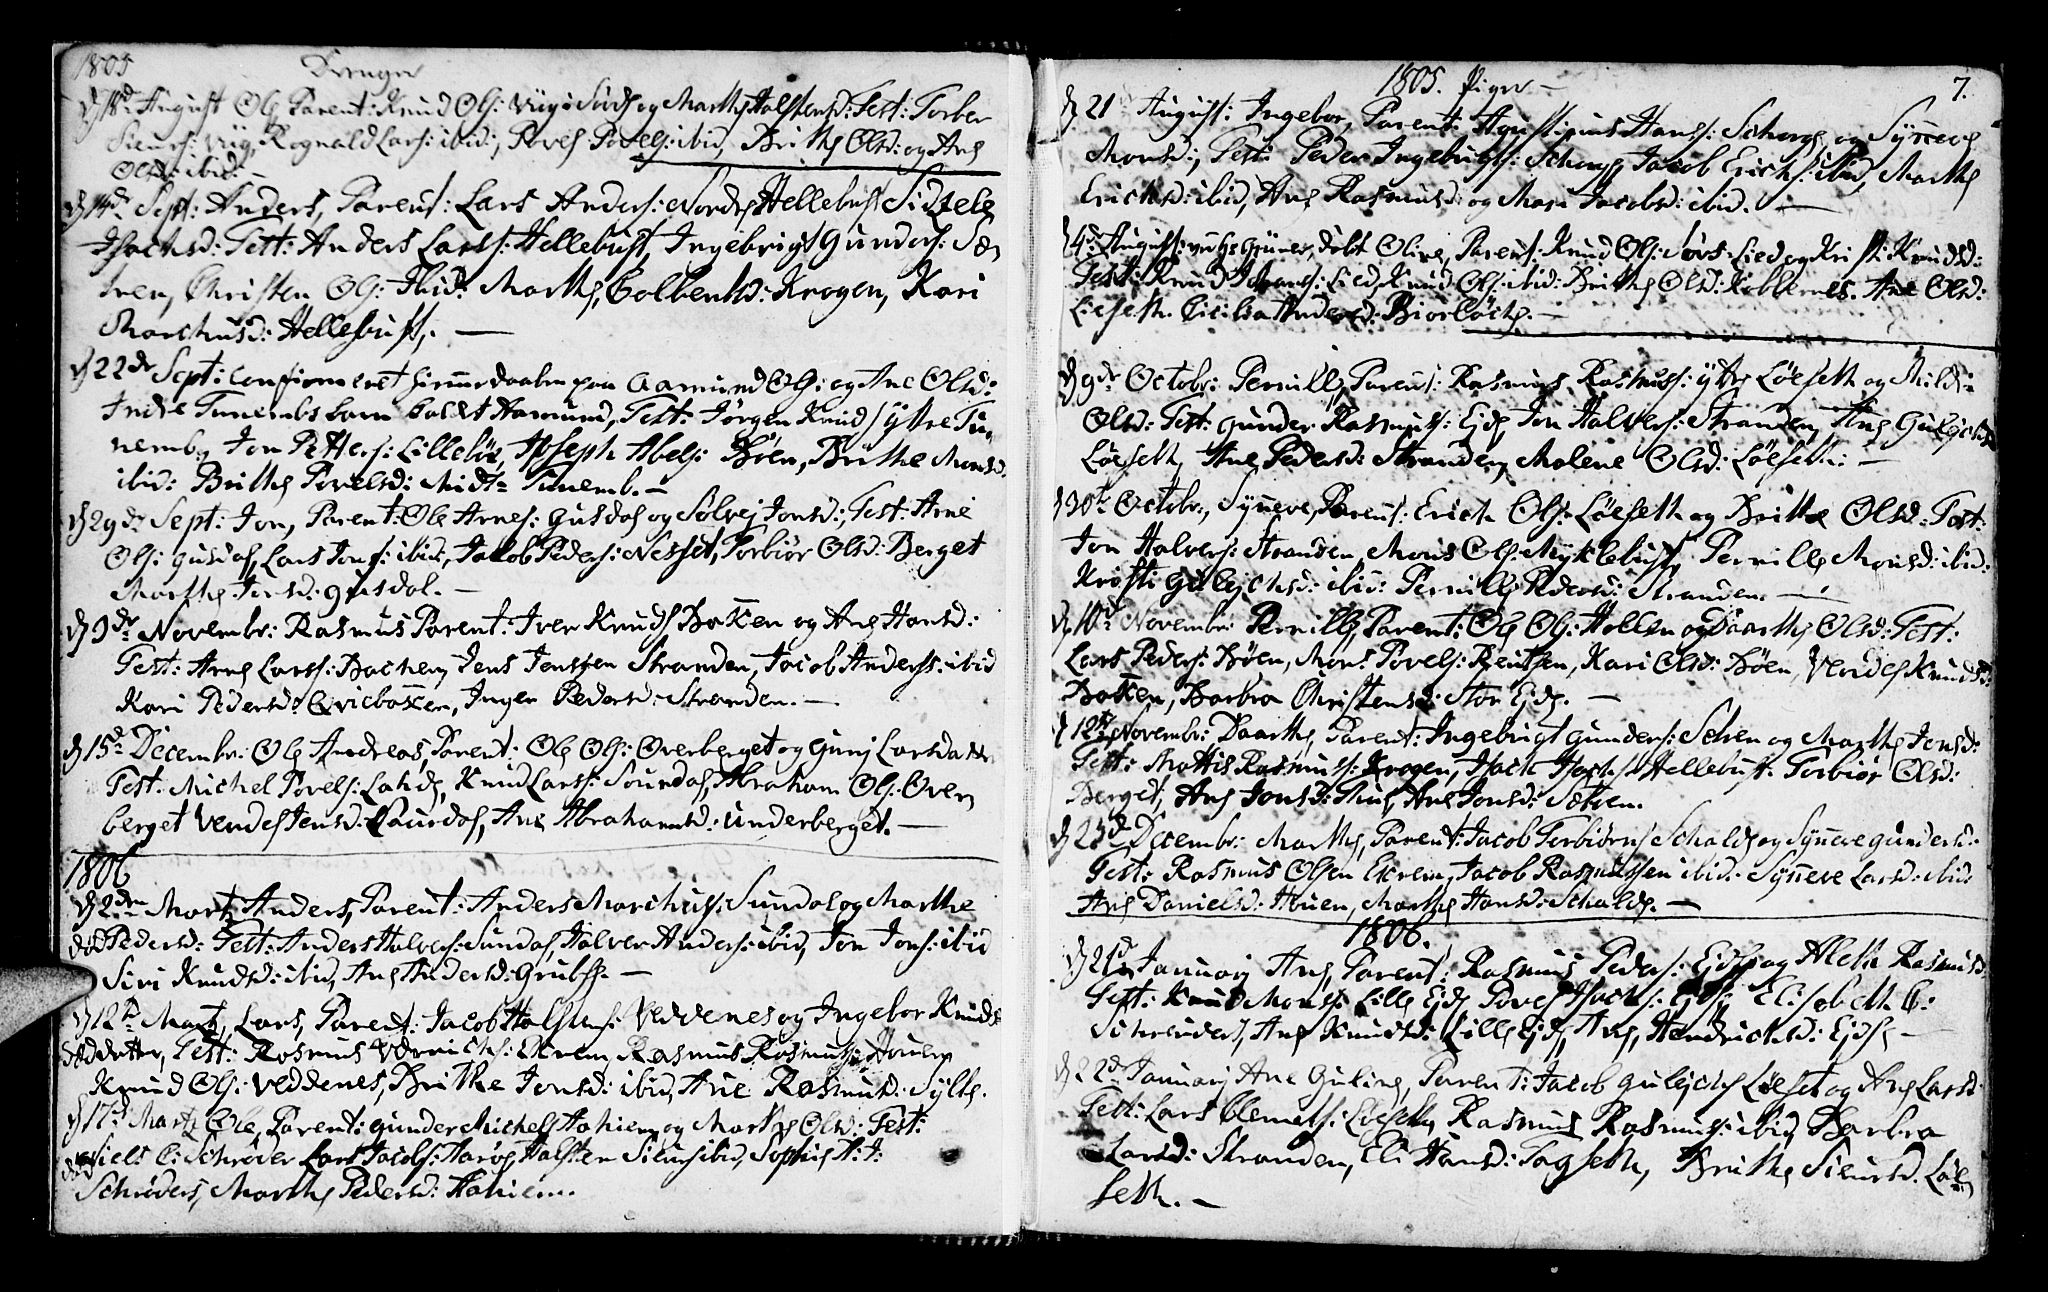 1805 Drenger
d 18de August Ole Parent: Knud Ols: Viig i Sud og Marthe Halstensd: Test: Torber
Sieurs: Viig, Rognald Lars: ibid:, Povel Povels: ibid, Brithe Olsd: og Ane
Olsd: ibid: —
d 14de Sept: Anders, Parent: Lars Anders: Nordre Hellebust Sidzele
Isachsd: Test: Anders Larss: Hellebust, Ingebrigt Gunders: Sæ,
tren, Christen Ols: Ibid: Marthe, Colbentsd: Krogen, Kari
Marchusd: Hellebust. —
d 22de Sept: confirmeret hiemmedaaben paa Aamund Ols: og Ane Olsd:
Indre Tunembs barn kaldt Aamund, Test: Jørgen Knuds Yttre Tu,
nemb, Jon Petters: Lillebøe, Joseph Abels: Bøen, Brithe Monsd:
ibid: Brithe Povelsd: Midt Tunemb. —
d 29de Sept: Jon, Parent: Ole Arnes: Gusdal og Solvej Jonsd:, Test: Arne
Ols: Gusdal, Lars Jons: ibid:, Jacob Peders: Nesset, Torbiør Olsd: Berget
Marthe Jonsd: Gusdal. —
d 3de Novembr: Rasmus Parent: Iver Knuds Backen og Ane Hansd:
Test: Arne Larss: Bachen, Jens Jenssen Stranden, Jacob Anderss: ibid
Kari Pedersd: Qviebacken, Inger Pedersd: Stranden. —
d 15de Decembr: Ole Andreas, Parent: Ole Ols: Overberget og Guri Larsdatter
Test: Michel Povels: Lande, Knud Larss: Sourdal, Abraham Ols: Over
berget Vendel Jensd: Sourdal, Ane Abrahamsd: Underberget. —
1806
d 2den Martz Anders, Parent: Anders Marchus: Sundal og Marthe
død Pedersd: Test: Anders Halvers: Sundal, Halver Anders: ibid, Jon Jons: ibid
Siri Knudsd: ibid, Ane Andersd: Grubsse. —
d 12te Martz Lars, Parent: Jacob Halstens: Veddenes og Ingebor Knuds
død datter, Test: Rasmus Ekrem Rasmus Rasmuss: Houen
Knud Ols: Veddenes, Brithe Jonsd: ibid, Ane Rasmusd: Sylte.
d 17de Martz Ole Parent: Gunder Michels Hahiem og Marthe Olsd: Test:
død Niels C: Schrøder Lars Jacobs: Aarøe, Halsten Sieurs ibid, Sophie H: J:
Schrøders, Marthe Pedersd: Hahiem.
1805. Piger — 7.
d 21 August: Ingebor, Parent: Augustinus Hanss: Schorge og Synneve
Monsd:, Test: Peder Ingebrigts: Schorge, Jacob Erichs: ibid, Marthe
Erichsd: ibid, Ane Rasmusd: og Mari Jacobsd: ibid. —
d 4de August døbt Oline, Parent: Knud Ols: Lied og Kristi Knudsd:
Test: Knud Lied, Knud Ols: ibid: Brithe Olsd: Kibbernes. Ane Olsd:
Liesseth. Cicilia Andersd: Biorløch. —
d 9de Octobr: Pernille, Parent: Rasmus Rasmuss: Yttre Løeseth og Mildri
Olsd: Test: Gunder Rasmuss: Ejde, Jon Halvers: Stranden, Ane Gulejchsd:
Løeseth, Ane Pedersd: Stranden, Malene Olsd: Løeseth: —
d 30te Octobr:, Synneve, Parent: Erich Ols: Løeseth og Brithe Olsd: Test:
Jon Halvers: Stranden, Mons Ols: Myklebust, Pernille Monsd: ibid:
Kristi Gulejchsd: ibid: Pernille Pedersd: Stranden. —
d 10de Novembr: Pernille, Parent: Ole Ols: Hollen og Daarthe Olsd: Test:
Lars Peders: Bøen, Mons Povels: Reitten, Kari Olsd: Bøen, Vendel Knudsd:
Backen, Barbra Christensd: Stor Ejde. —
d 12te Novembr: Daarthe, Parent: Ingebrigt Gunders: Setren og Marthe Jonsd:
Test: Mattis Rasmuss: Krogen, Isach Isachs: Hellebust: Torbiør Olsd:
Berget, Ane Jonsd: Ane Jonsd: Sætren.
d 23de Decembr: Marthe, Parent: Jacob Torbiørns Schalde og Synneve Gundersd:
Test: Rasmus Olsen Ekrem, Jacob Rasmussen ibid: Synneve Larsd: ibid:
Ane Danielsd: Houen, Marthe Hansd: Schalde. —
1806.
d 21de Januarj Ane, Parent: Rasmus Peders: Ejde og Aleth Rasmusd
Test: Knud Monss: Lille Ejde, Povel Isachs: Ejde, Elisabeth C:
Schreuders, Ane Knudsd: Lille Ejde, Ane, Hendrichsd: Ejde —
d 22de Januarj Ane Guline, Parent: Jacob Gulejchs Løeset og Ane Larsd:
Test: Lars Clemets: Løeseth, Rasmus Rasmuss: ibid, Barbra
Larsd: Stranden, Eli Hansd: Tagseth, Brithe Sieursd. Løe
seth. —